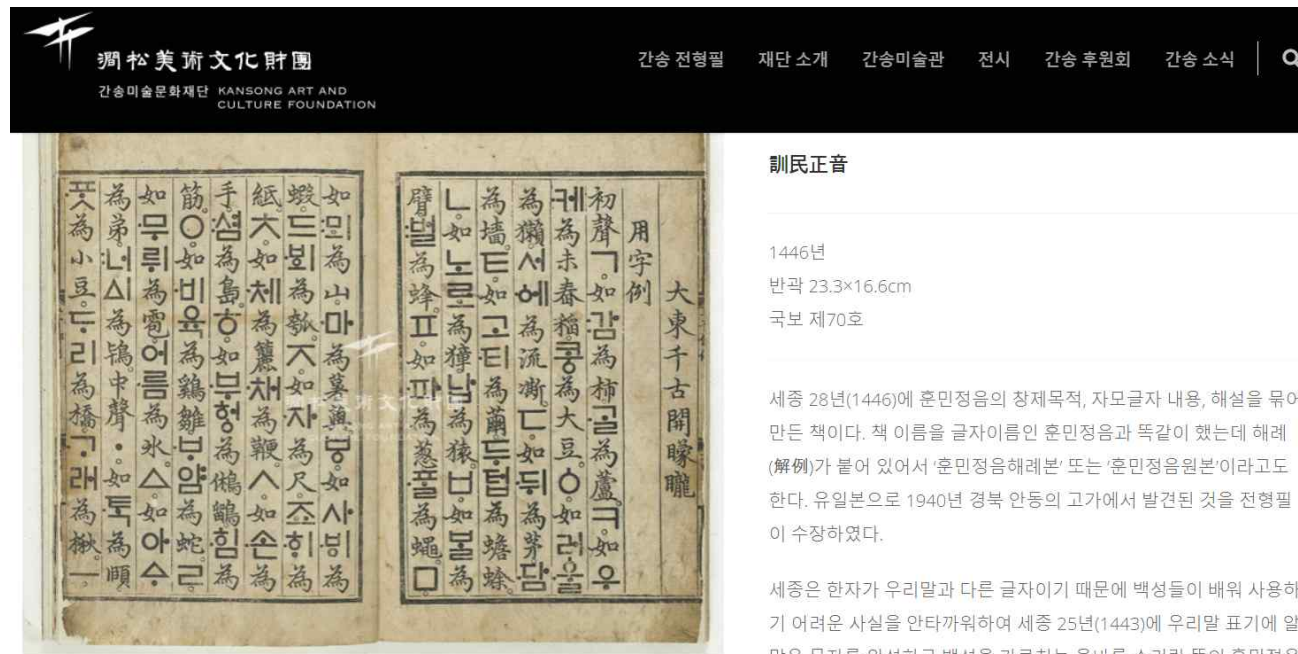 澗松美術文化財團
간송미술문화재단 KANSONG ART AND
CULTURE FOUNDATION
간송 전형필 재단 소개 간송미술관 전시 간송 후원회 간송 소식
大東千古開矇矓
用字例
初聲ㄱ。如감為柿。ᄀᆞᆯ為蘆。ㅋ。如우
케為未舂稻。콩為大豆。ㆁ。如러울
為獺。서에為流凘。ㄷ。如뒤為茅。담
為墻。ㅌ。如고티為繭。두텁為蟾蜍。
ㄴ。如노로為獐。납為猿。ㅂ。如ᄇᆞᆯ為
臂。벌為蜂。ㅍ。如파為葱。ᄑᆞᆯ為蠅。ㅁ
如뫼為山。마為薯藇。ㅸ。如사ᄫᅵ為
蝦。드ᄫᅴ為瓠。ㅈ。如자為尺。죠ᄒᆡ為
紙。ㅊ。如체為籭。채為鞭。ㅅ。如손為
手。셤為島。ㅎ。如부헝為鵂鶹。힘為
筋。ㅇ。如비육為鷄雛。ᄇᆞ얌為蛇。ㄹ
如무뤼為雹。어름為氷。ㅿ。如아ᅀᆞ
為弟。너ᅀᅵ為鴇。中聲ㆍ。如ᄐᆞᆨ為頤
ᄑᆞᆺ為小豆。ᄃᆞ리為橋。ᄀᆞ래為楸。ㅡ
訓民正音
1446년
반곽 23.3×16.6cm
국보 제70호
세종 28년(1446)에 훈민정음의 창제목적, 자모글자 내용, 해설을 묶어
만든 책이다. 책 이름을 글자이름인 훈민정음과 똑같이 했는데 해례
(解例)가 붙어 있어서 '훈민정음해례본' 또는 '훈민정음원본'이라고도
한다. 유일본으로 1940년 경북 안동의 고가에서 발견된 것을 전형필
이 수장하였다.
세종은 한자가 우리말과 다른 글자이기 때문에 백성들이 배워 사용하
기 어려운 사실을 안타까워하여 세종 25년(1443)에 우리말 표기에 알